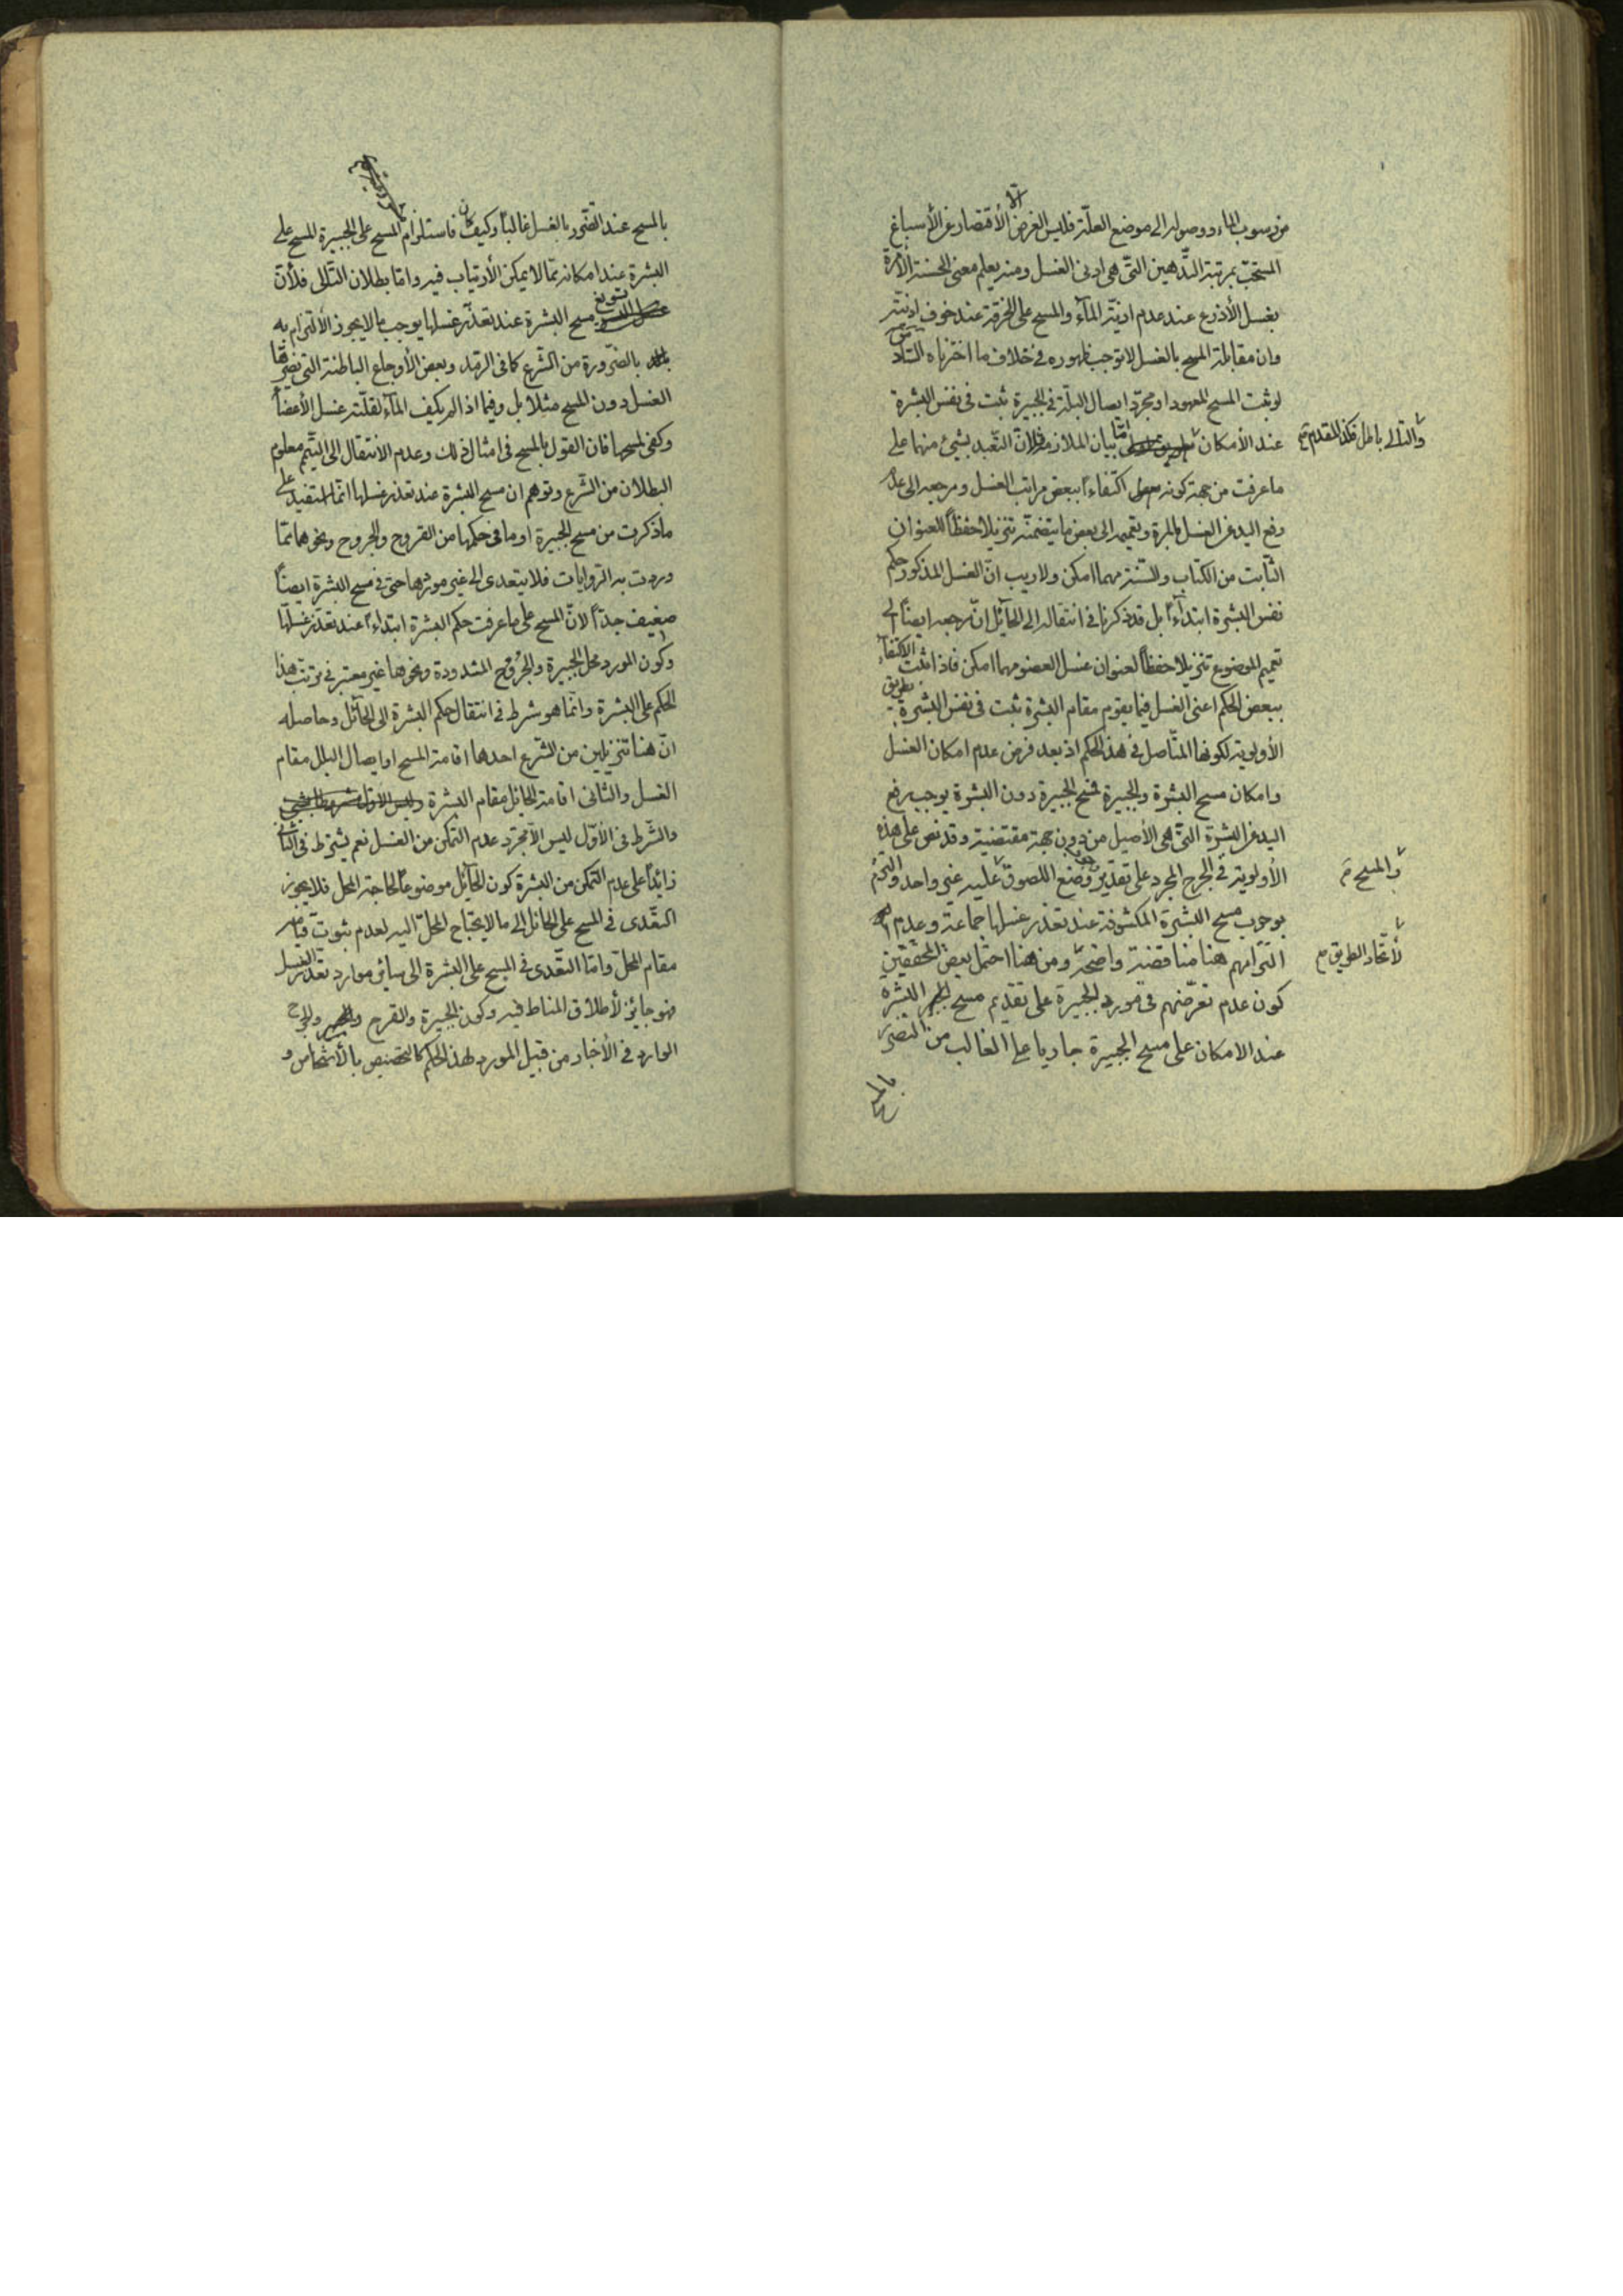 من رسوب الماء ووصوله الى موضع العلّة فليس الغرض الّا الأقتصار عن الأسباغ
المستحبّ بمرتبة التّدهين التّى هى ادنى الغسل ومنه يعلم معنى الحسنة الآمرة
بغسل الأذرع عند عدم اذيّة المآء والمسح على الخرقة عند خوف اذيّته
وان مقابلة المسح بالغسل لا يوجب ظهوره فى خلاف ما اخترناه السّادس
لو ثبت المسح المعهود او مجرّد ايصال البلّة فى الجبيرة ثبت فى نفس البشرة
عند الأمكان والتّالى باطل فكذا المقدم امّا بيان الملازمة فلأنّ التّعبد بشيئ منهما على
ما عرفت من جهة كونه اكتفاءً ببعض مراتب الغسل ومرجعه الى عدم
رفع اليد عن الغسل بالمرة وتعميمه الى بعض ما يتضمنه تنزيلا حفظاً للعنوان
الثّابت من الكتاب والسّنة مهما امكن ولا ريب انّ الغسل المذكور حكم
نفس البشرة ابتداءً بل قد ذكرنا فى انتقاله الى الحآئل انّ مرجعه ايضاً الى
تعميم الموضوع تنزيلا حفظاً لعنوان غسل العضو مهما امكن فاذا ثبت الاكتفآء
ببعض الحكم اعنى الغسل فيما يقوم مقام البشرة ثبت فى نفس البشرة بطريق
الأولوية لكونها المتّاصل فى هذا الحكم اذ بعد فرض عدم امكان الغسل
وامكان مسح البشرة والجبيرة فمسح الجبيرة دون البشرة يوجب رفع
اليد عن البشرة التّى هى الأصيل من دون جهة مقتضية وقد نص على هذه
الأولوية فى الجرح المجرد على تقدير وضع اللصوق والمسح عليه غير واحد والتزم
بوجوب مسح البشرة المكشوفة عند تعذر غسلها جماعة وعدم
التزامهم هنا مناقضة واضحة لأتّحاد الطريق ومن هنا احتمل بعض المحققين
كون عدم تعرّضهم فى مورد الجبيرة على تقديم مسح البشرة
عند الامكان على مسح الجبيرة جاريا على الغالب من التضرّر
بالمسح
بالمسح عند التضّرر بالغسل غالباً وكيف كان فاستلزام المسح على الجبيرة المسح على
البشرة عند امكانه ممّا لا يمكن الأرتياب فيه وامّا بطلان التّالى فلأنّ
تسويغ مسح البشرة عند تعذّر غسلها يوجب ما لا يجوز الألتزام به
بالضّرورة من الشّرع كما فى الرّمد وبعض الأوجاع الباطنة التى يضرّها
الغسل دون المسح مثلا بل وفيما اذا لم يكف المآء لقلّته غسل الأعضآء
وكفى لمسحها فان القول بالمسح فى امثال ذلك وعدم الأنتقال الى التّيمم معلوم
البطلان من الشّرع وتوهم ان مسح البشرة عند تعذر غسلها انّما استفيد على
ما ذكرت من مسح الجبيرة او ما فى حكمها من القروح والجروح ونحوهما ممّا
وردت به الرّوايات فلا يتعدى الى غير موردها حتى فى مسح البشرة ايضاً
ضعيف جدّاً لانّ المسح على ما عرفت حكم البشرة ابتداءً عند تعذّر غسلها
وكون المورد محل الجبيرة والجروح المشدودة ونحوها غير معتبر فى ترتّب هذا
الحكم على البشرة وانّما هو شرط فى انتقال حكم البشرة الى الحآئل وحاصله
انّ هنا تنزيلين من الشّرع احدهما اقامة المسح او ايصال البلل مقام
الغسل والثّانى اقامة الحائل مقام البشرة
والشّرط فى الأوّل ليس الّا مجرّد عدم التّمكن من الغسل نعم يشترط فى الثّانى
زايداً على عدم التمّكن من البشرة كون الحآئل موضوعاً لحاجة المحل فلا يجوز
التّعدى فى المسح على الحائل الى ما لا يحتاج المحلّ اليه لعدم ثبوت قيامه
مقام المحلّ وامّا التعّدى فى المسح على البشرة الى سائر موارد تعذّر الغسل
فهو جايز لأطلاق المناط فيه وكون الجبيرة والقرح والجرح
الوارد فى الأخبار من قبيل المورد لهذا الحكم كالتخصيص بالأشخاص و